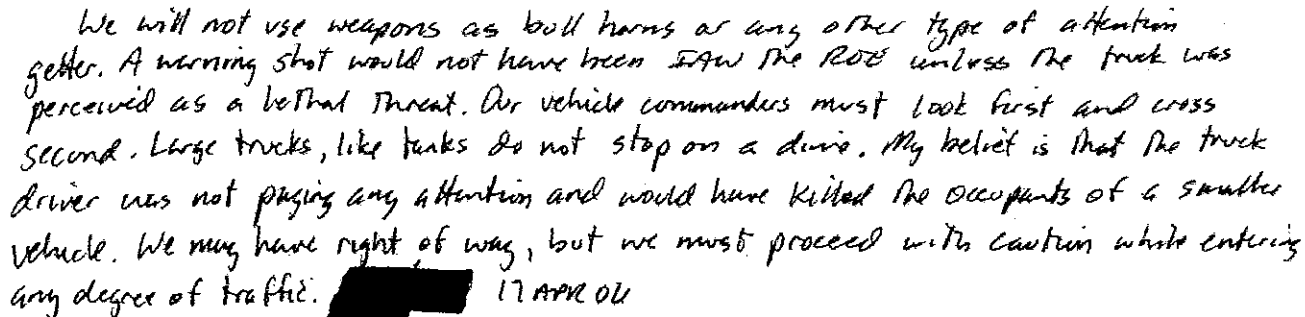 We will not use weapons as bull horns or any other type of attention
getter. A warning shot would not have been IAW the ROE unless the truck was
perceived as a lethal threat. Our vehicle commanders must look first and cross
second. Large trucks, like tanks do not stop on a dime. My belief is that the truck
driver was not paying any attention and would have killed the occupants of a smaller
vehicle. We may have right of way, but we must proceed with caution while entering
any degree of traffic. 17 APR 04